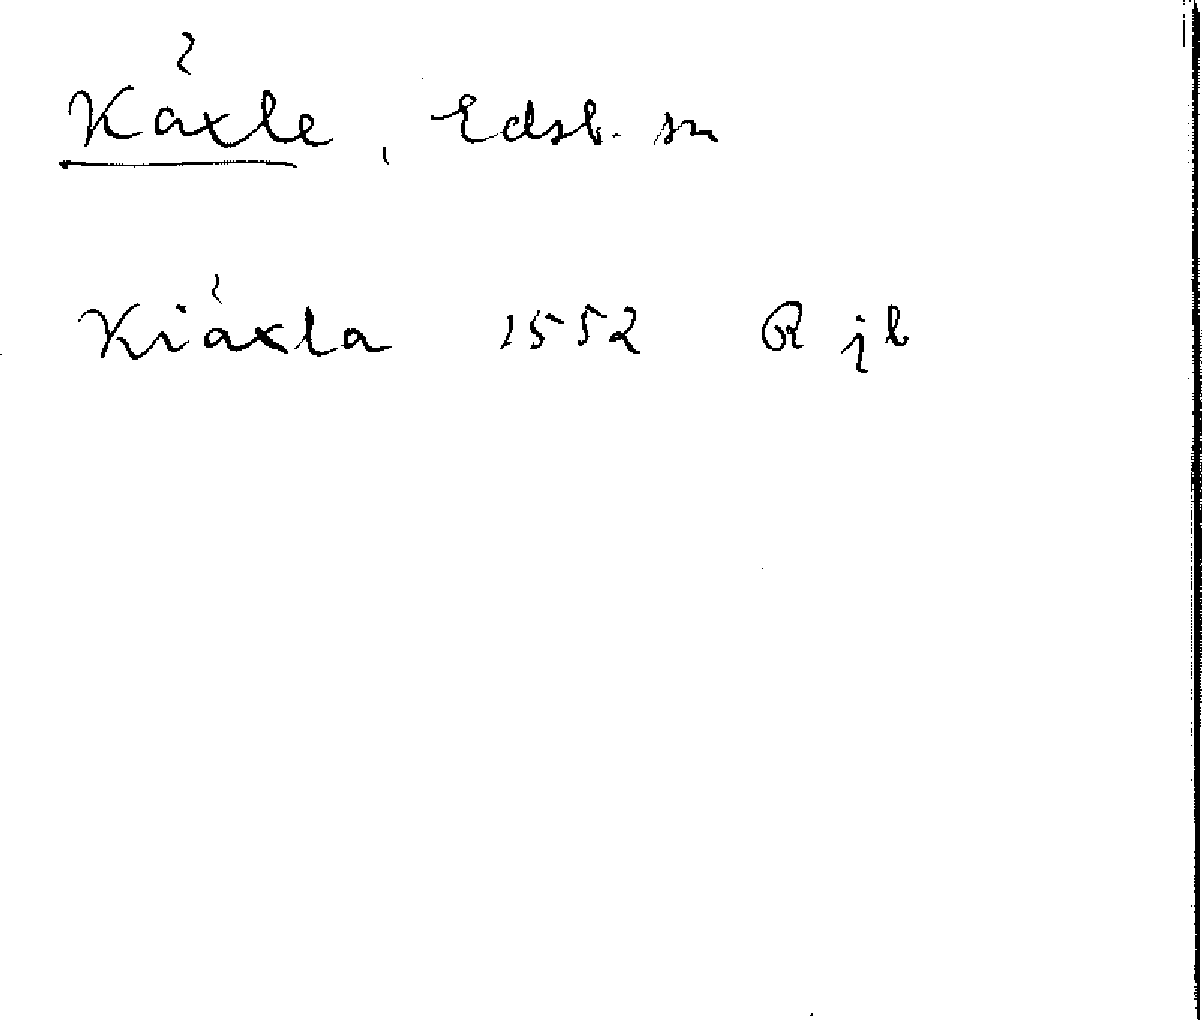 Käxle, Edsb. sn
Kiäxla 1552 R jb